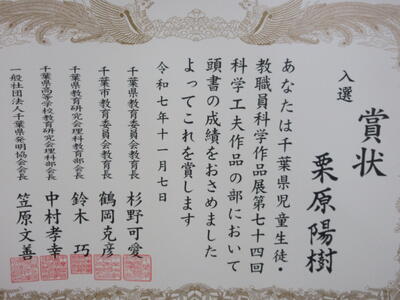 賞状
入選
栗原陽樹
あなたは千葉県児童生徒・
教職員科学作品展第七十四回
科学工夫作品の部において
頭書の成績をおさめました
よってこれを賞します
令和七年十一月七日
千葉県教育委員会教育長 杉野可愛
千葉市教育委員会教育長 鶴岡克彦
千葉県教育研究会理科教育部会長 鈴木巧
千葉県高等学校教育研究会理科部会長 中村孝幸
一般社団法人千葉県発明協会会長 笠原文善